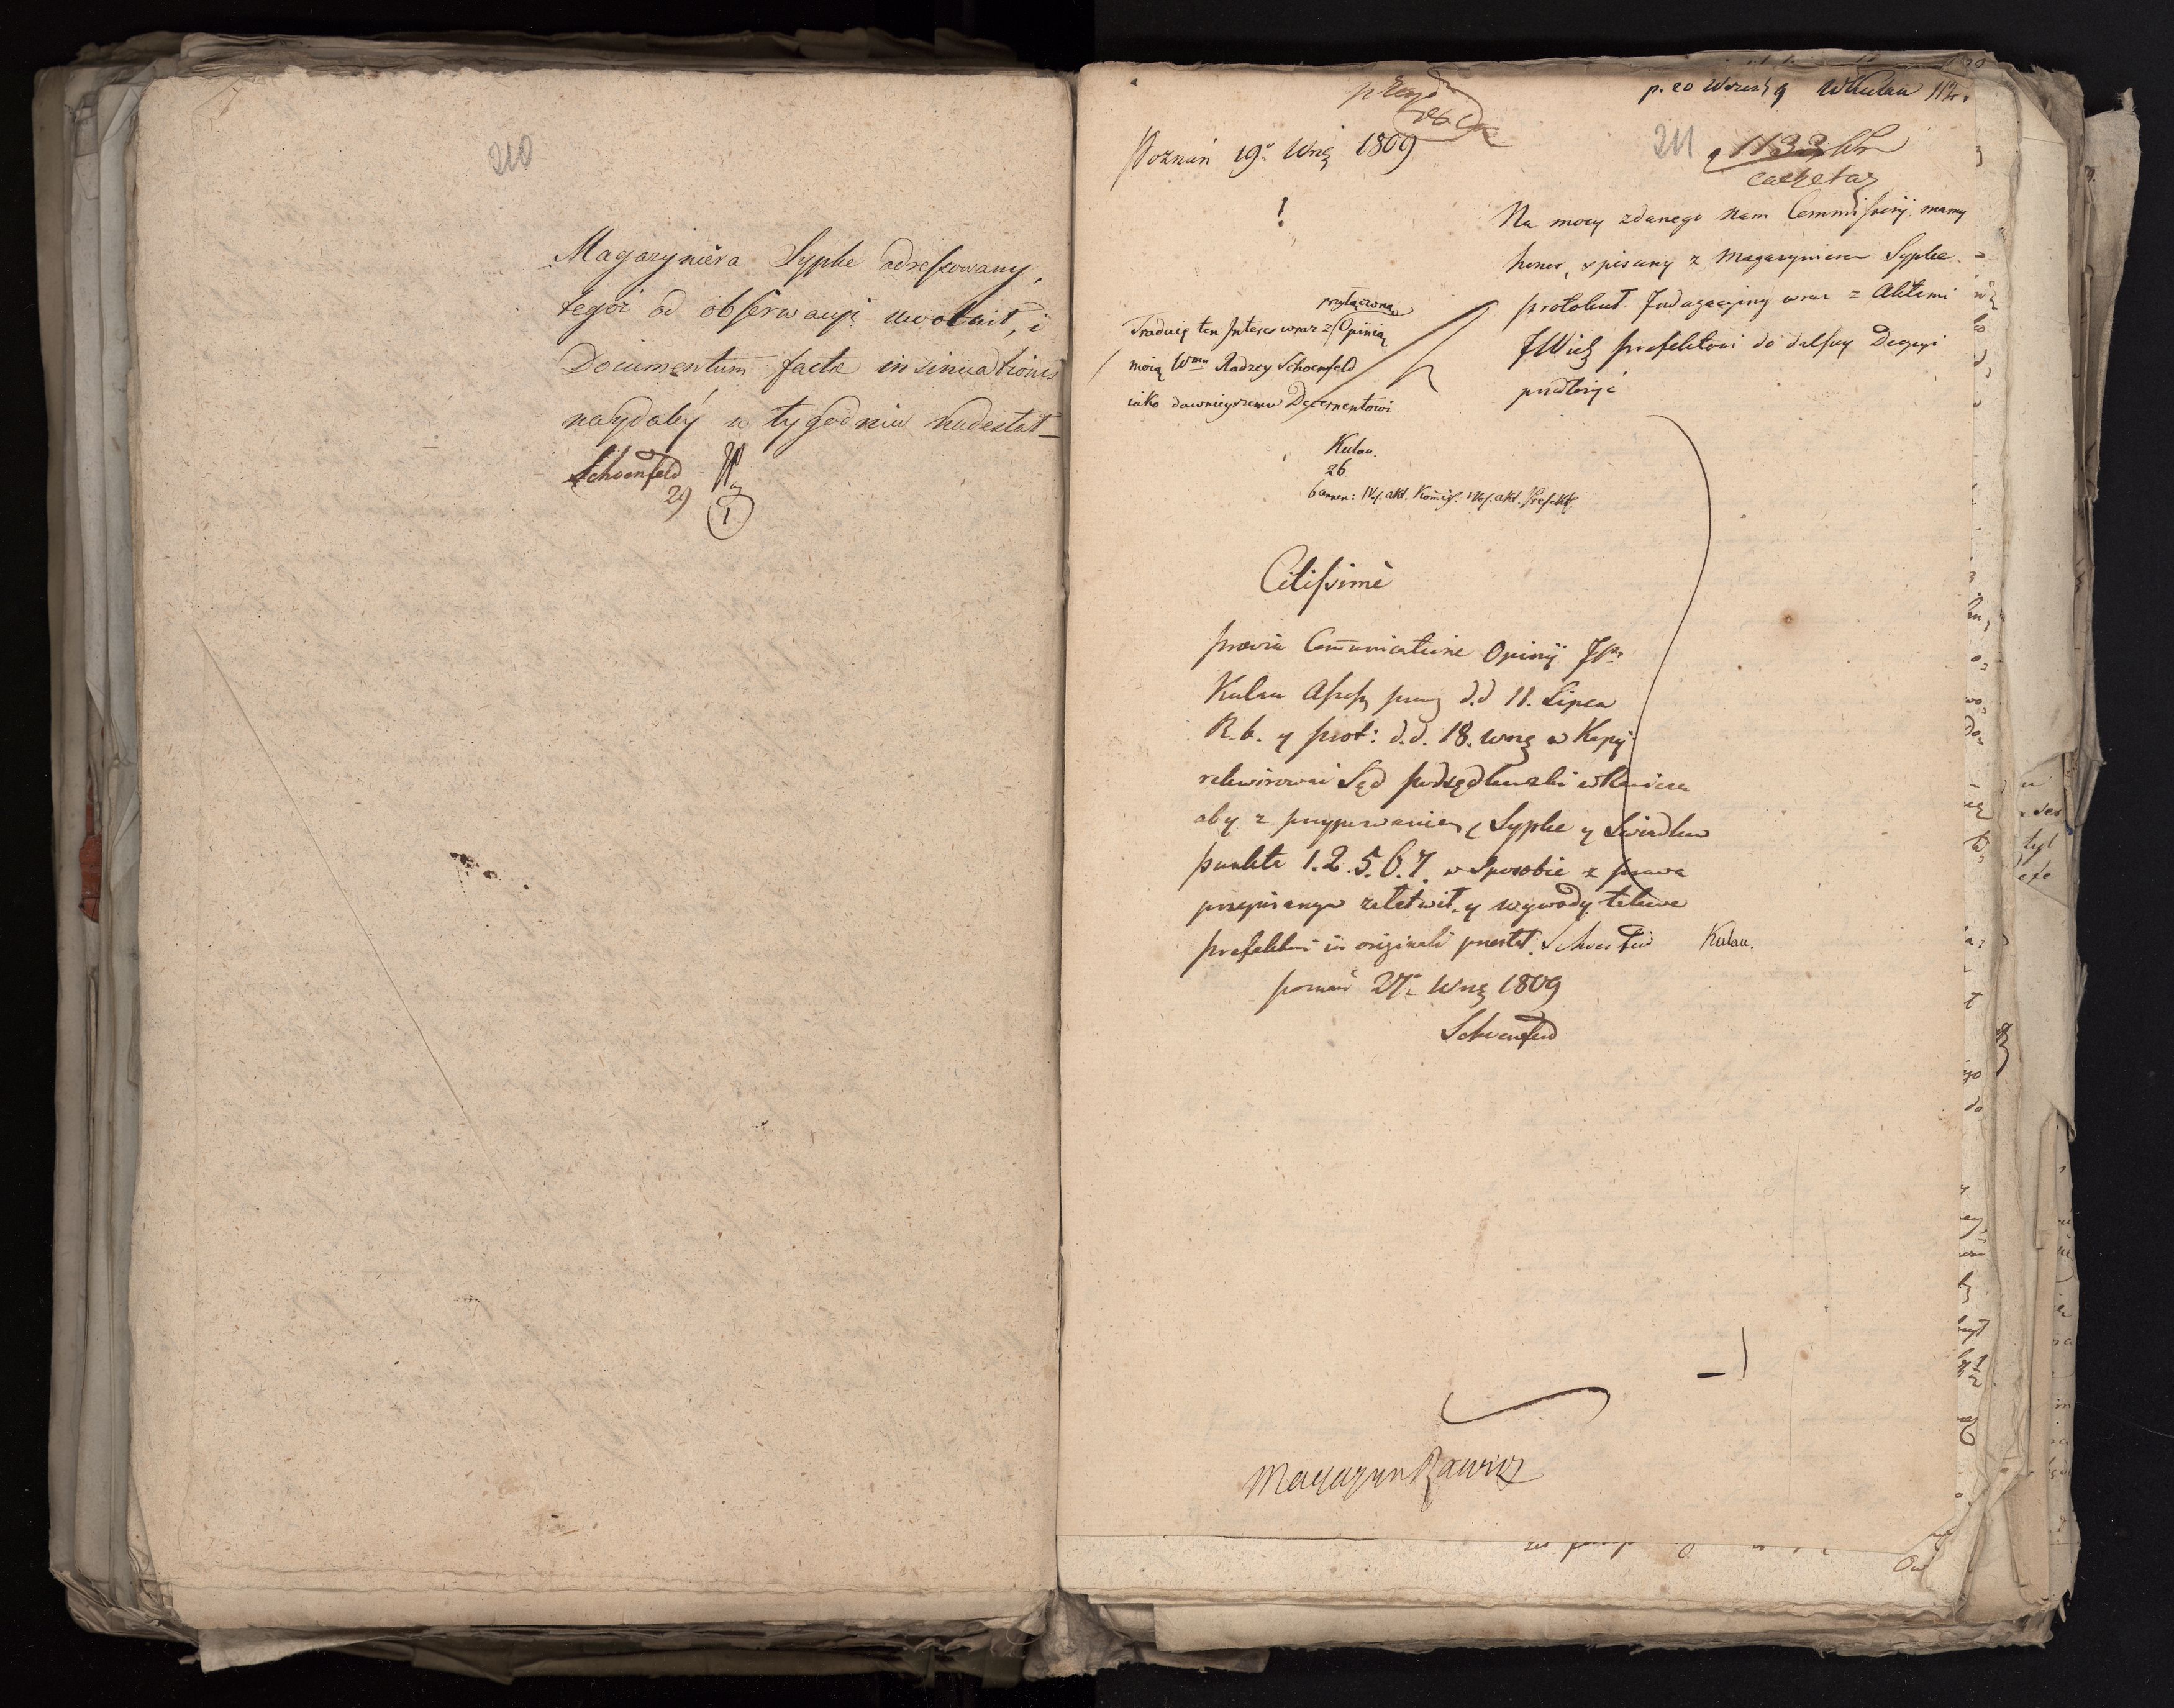 210
Magazyniera Sypke adressowany,
tegoż od obserwacyi uwolnił, i
Documentum factæ insinuationis
naydaléy w tygodniu nadesłał
Schoenfeld
29
1
p. 20 Wrześ 9 WKulau 112.
Poznań 19. Wrz 1809
211 1133
!
Na mocy zdanego nam Commissorij. mamy
honor, spisany z Magazynierem Sypke
protokuł Indagacyiny wraz z Aktami
JWiel Prefektowi do dalszey Decyzyi
przyłączoną
Traduię ten Interes wraz z Opinią
moią Wmu Radzcy Schoenfeld
iako dawnieyszemu Decernentowi
Kulau.
26.
6 annex: 1 Vol. akt. Komis. 1 Vol. akt. Prefekt.
Citissimè
prævia Communicatione Opinij
Kulau Assess d.d 11. Lipca
R. b. y prot: d.d. 18. Wrz w Kopij
rekwirować Sąd podsędkowski
aby z przyzwaniem Sypke y Świadków
punkta 1.2.5.6.7. w Sposobie z prawa
przepisanym załatwił y wywody takowe
prefektowi in originali przesłał. Schoenfeld Kulau.
poznań 27. Wrz 1809
Schoenfeld
Magazyn Rawicz